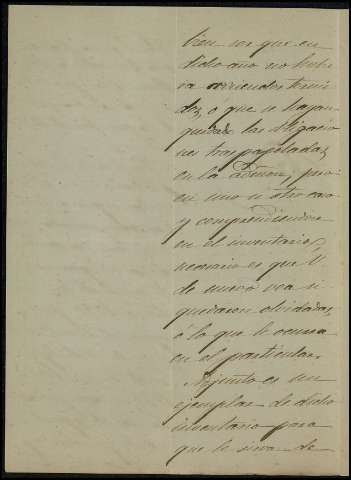 bien ser que en
dicho año no hubie
ra arriendos termi
dos, ó que se hayan
quedado las obligacio
nes traspapeladas
en la Admon, pero
en uno ú otro caso
y comprendiendose
en el inventario,
necesario es que V.
de nuevo vea si
quedaron olvidadas,
ó lo que le ocurra
en el particular.
Adjunto es un
ejemplar de dicho
inventario para
que le sirva de